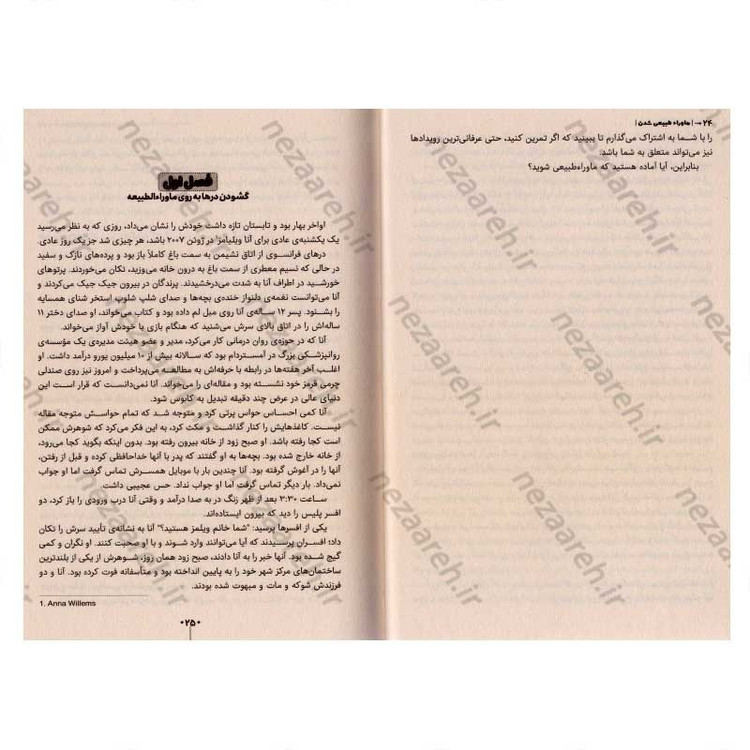 ۲۴ → | ماوراء طبیعی شدن |
را با شما به اشتراک می‌گذارم تا ببینید که اگر تمرین کنید، حتی عرفانی‌ترین رویدادها
نیز می‌تواند متعلق به شما باشد.
بنابراین، آیا آماده هستید که ماوراءطبیعی شوید؟
فصل اول
گشودن درها به روی ماوراءالطبیعه
اواخر بهار بود و تابستان تازه داشت خودش را نشان می‌داد، روزی که به نظر می‌رسید
یک یکشنبه‌ی عادی برای آنا ویلیامز¹ در ژوئن ۲۰۰۷ باشد، هر چیزی شد جز یک روز عادی.
درهای فرانسوی از اتاق نشیمن به سمت باغ کاملاً باز بود و پرده‌های نازک و سفید
در حالی که نسیم معطری از سمت باغ به درون خانه می‌وزید، تکان می‌خوردند. پرتوهای
خورشید در اطراف آنا به شدت می‌درخشیدند. پرندگان در بیرون جیک جیک می‌کردند و
آنا می‌توانست نغمه‌ی دلنواز خنده‌ی بچه‌ها و صدای شلپ شلوپ استخر شنای همسایه
را بشنود. پسر ۱۲ ساله‌ی آنا روی مبل لم داده بود و کتاب می‌خواند، او صدای دختر ۱۱
ساله‌اش را در اتاق بالای سرش می‌شنید که هنگام بازی با خودش آواز می‌خواند.
آنا که در حوزه‌ی روان درمانی کار می‌کرد، مدیر و عضو هیئت مدیره‌ی یک مؤسسه‌ی
روانپزشکی بزرگ در آمستردام بود که سالانه بیش از ۱۰ میلیون یورو درآمد داشت. او
اغلب آخر هفته‌ها در رابطه با حرفه‌اش به مطالعه می‌پرداخت و امروز نیز روی صندلی
چرمی قرمز خود نشسته بود و مقاله‌ای را می‌خواند. آنا نمی‌دانست که قرار است این
دنیای عالی در عرض چند دقیقه تبدیل به کابوس شود.
آنا کمی احساس حواس پرتی کرد و متوجه شد که تمام حواسش متوجه مقاله
نیست. کاغذهایش را کنار گذاشت و مکث کرد، به این فکر می‌کرد که شوهرش ممکن
است کجا رفته باشد. او صبح زود از خانه بیرون رفته بود. بدون اینکه بگوید کجا می‌رود،
از خانه خارج شده بود. بچه‌ها به او گفتند که پدر با آنها خداحافظی کرده و قبل از رفتن،
آنها را در آغوش گرفته بود. آنا چندین بار با موبایل همسرش تماس گرفت اما او جواب
نمی‌داد. بار دیگر تماس گرفت اما او جواب نداد. حس عجیبی داشت.
ساعت ۳:۳۰ بعد از ظهر زنگ در به صدا درآمد و وقتی آنا درب ورودی را باز کرد، دو
افسر پلیس را دید که بیرون ایستاده‌اند.
یکی از افسرها پرسید: "شما خانم ویلمز هستید؟" آنا به نشانه‌ی تأیید سرش را تکان
داد؛ افسران پرسیدند که آیا می‌توانند وارد شوند و با او صحبت کنند. او نگران و کمی
گیج شده بود. آنها خبر را به آنا دادند، صبح زود همان روز، شوهرش از یکی از بلندترین
ساختمان‌های مرکز شهر خود را به پایین انداخته بود و متأسفانه فوت کرده بود. آنا و دو
فرزندش شوکه و مات و مبهوت شده بودند.
1. Anna Willems
۰۲۵۰
nezaareh.ir
nezaareh.ir
nezaareh.ir
nezaareh.ir
nezaareh.ir
nezaareh.ir
nezaareh.ir
nezaareh.ir